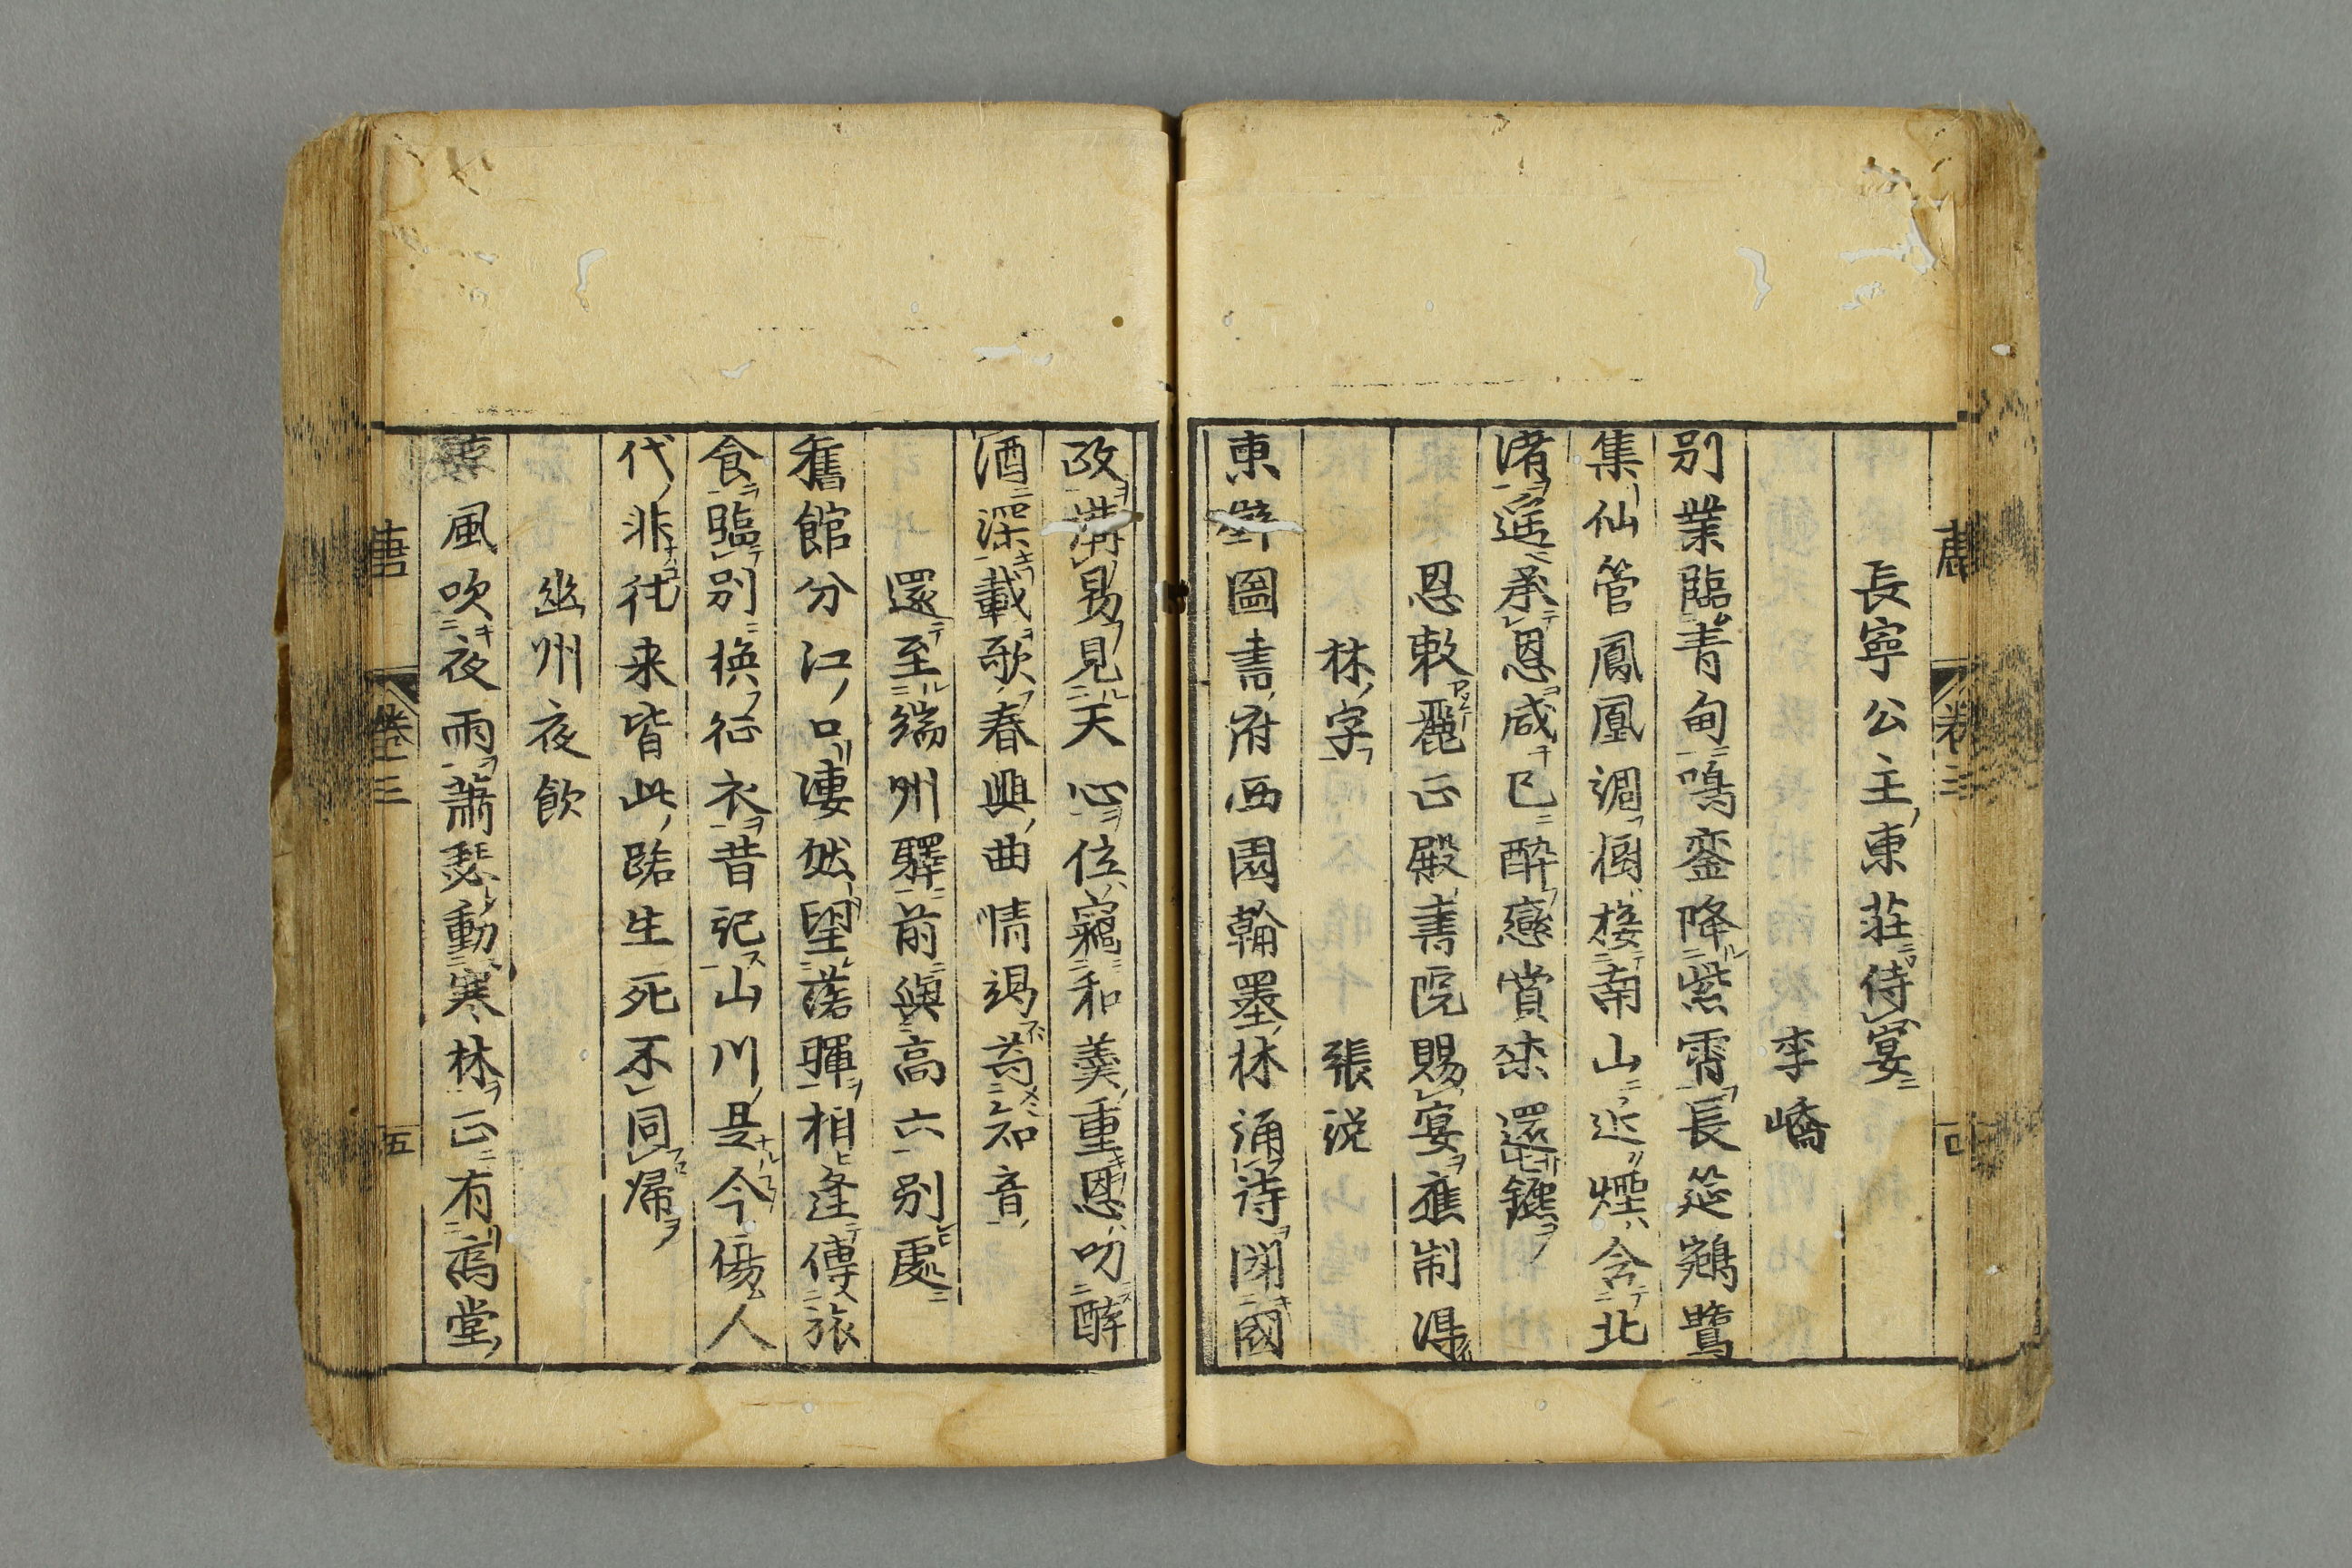 唐 卷三
長寧公主東莊侍宴
李嶠
別業臨青甸鳴鑾降紫霄長筵鵷鷺
集仙管鳳凰調樹接南山近煙含北
渚遥承恩咸已醉戀賞未還鑣
恩敕麗正殿書院賜宴應制得
林字 張説
東壁圖書府西園翰墨林誦詩聞國
政講易見天心位竊和羹重恩叨醉
酒深載歌春興曲情竭爲知音
還至端州驛前與高六別處
舊館分江口凄然望落暉相逢傳旅
食臨別換征衣昔記山川是今傷人
代非往来皆此路生死不同帰
幽州夜飲
凉風吹夜雨蕭瑟動寒林正有高堂
唐 卷三 五